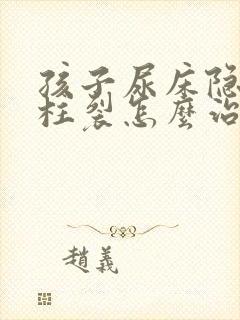 孩子尿床隐
柱裂怎麼治
趙義